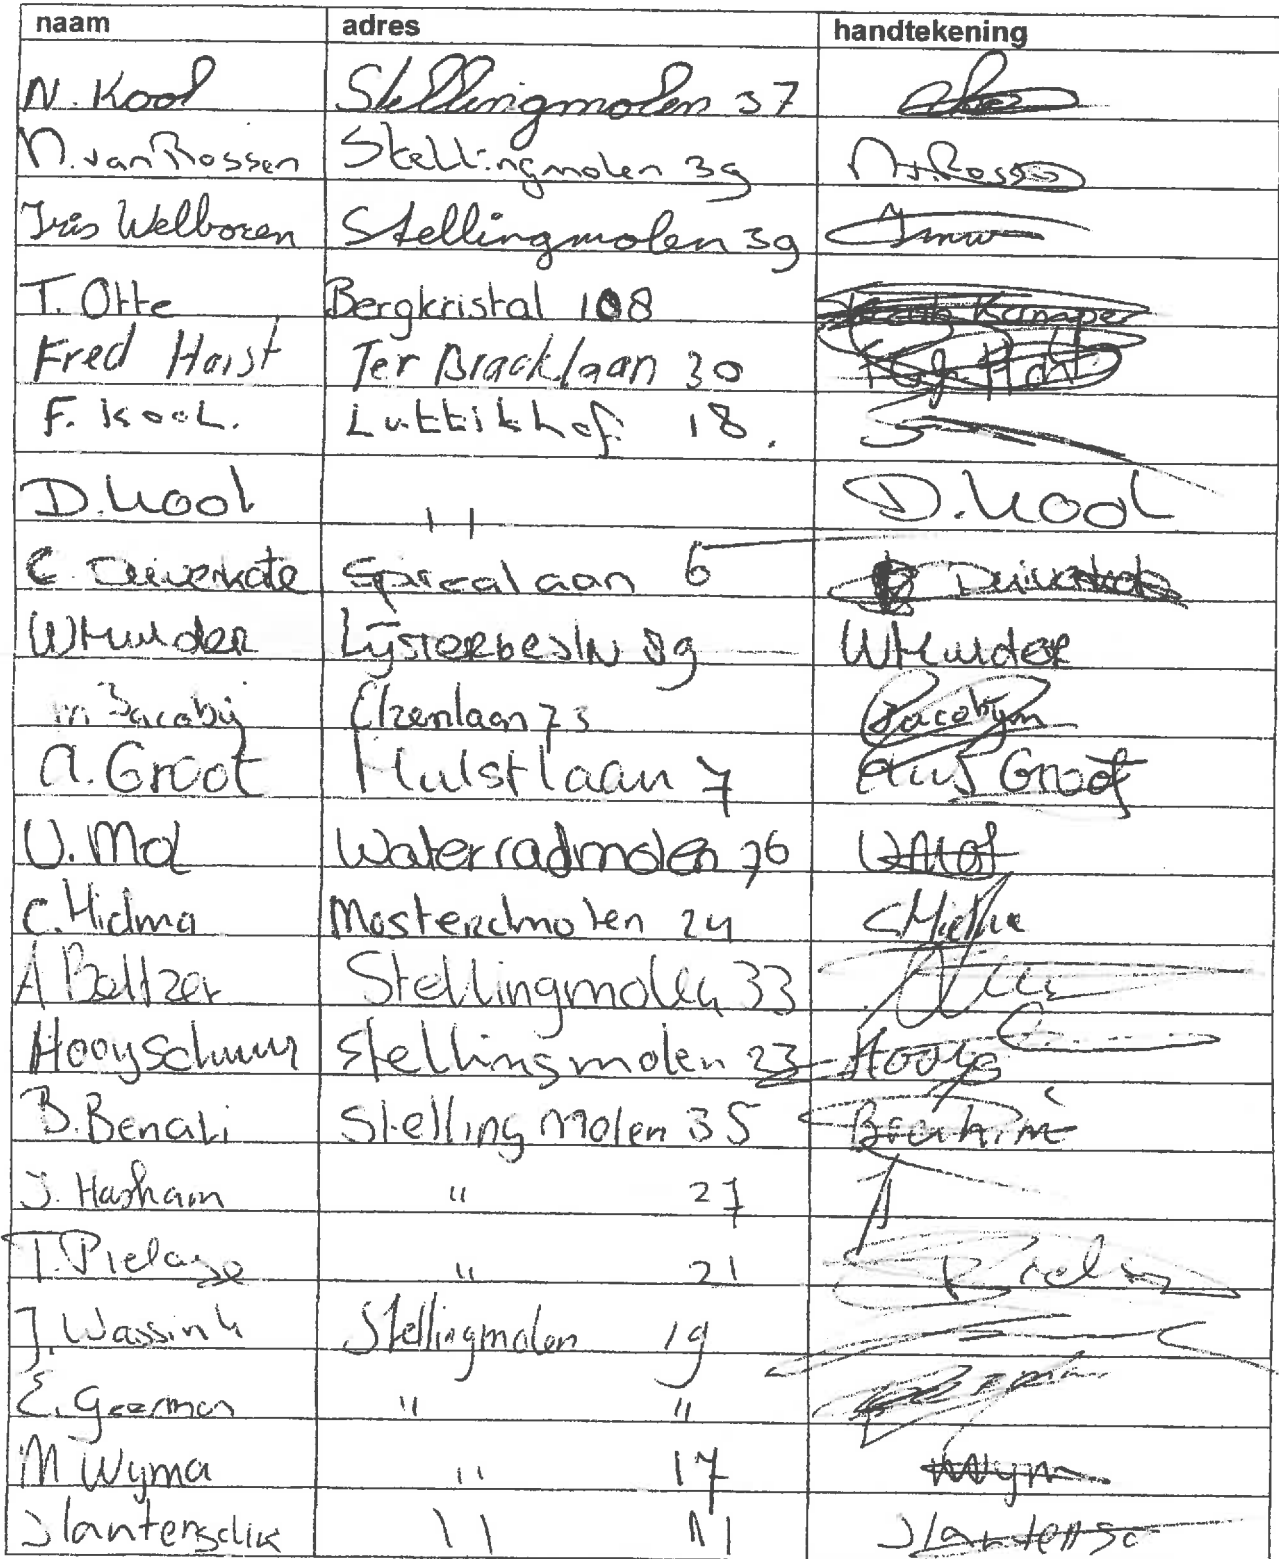 naam adres handtekening
N. Kool Stellingmolen 37
N. van Rossen Stellingmolen 39 N.v.Rosso
Iris Welboren Stellingmolen 39
T. Otte Bergkristal 108 Kamper
Fred Horst Ter Braaklaan 30
F. Kool. Luttikhof 18.
D. Kool " D. Kool
C. Duiverkate Spirealaan 6 Duiverkate
WHulder Lijsterbesln 89 WHulder
M Jacobij Elzenlaan 73 Jacobij m
A. Groot Hulstlaan 7 Groot
U. Mol Waterradmolen 76 UMol
C. Hidma Mosterdmolen 24
A Baltzer Stellingmolen 33
Hooyschuur Stellingmolen 23 Hooys
B. Benali Stelling Molen 35 Brahim
J. Hasham " 27
T. Pielage " 21
J. Wassink Stellingmolen 19
E. Geerman " "
M Wyma " 17 Wym
J lantersdik " 11